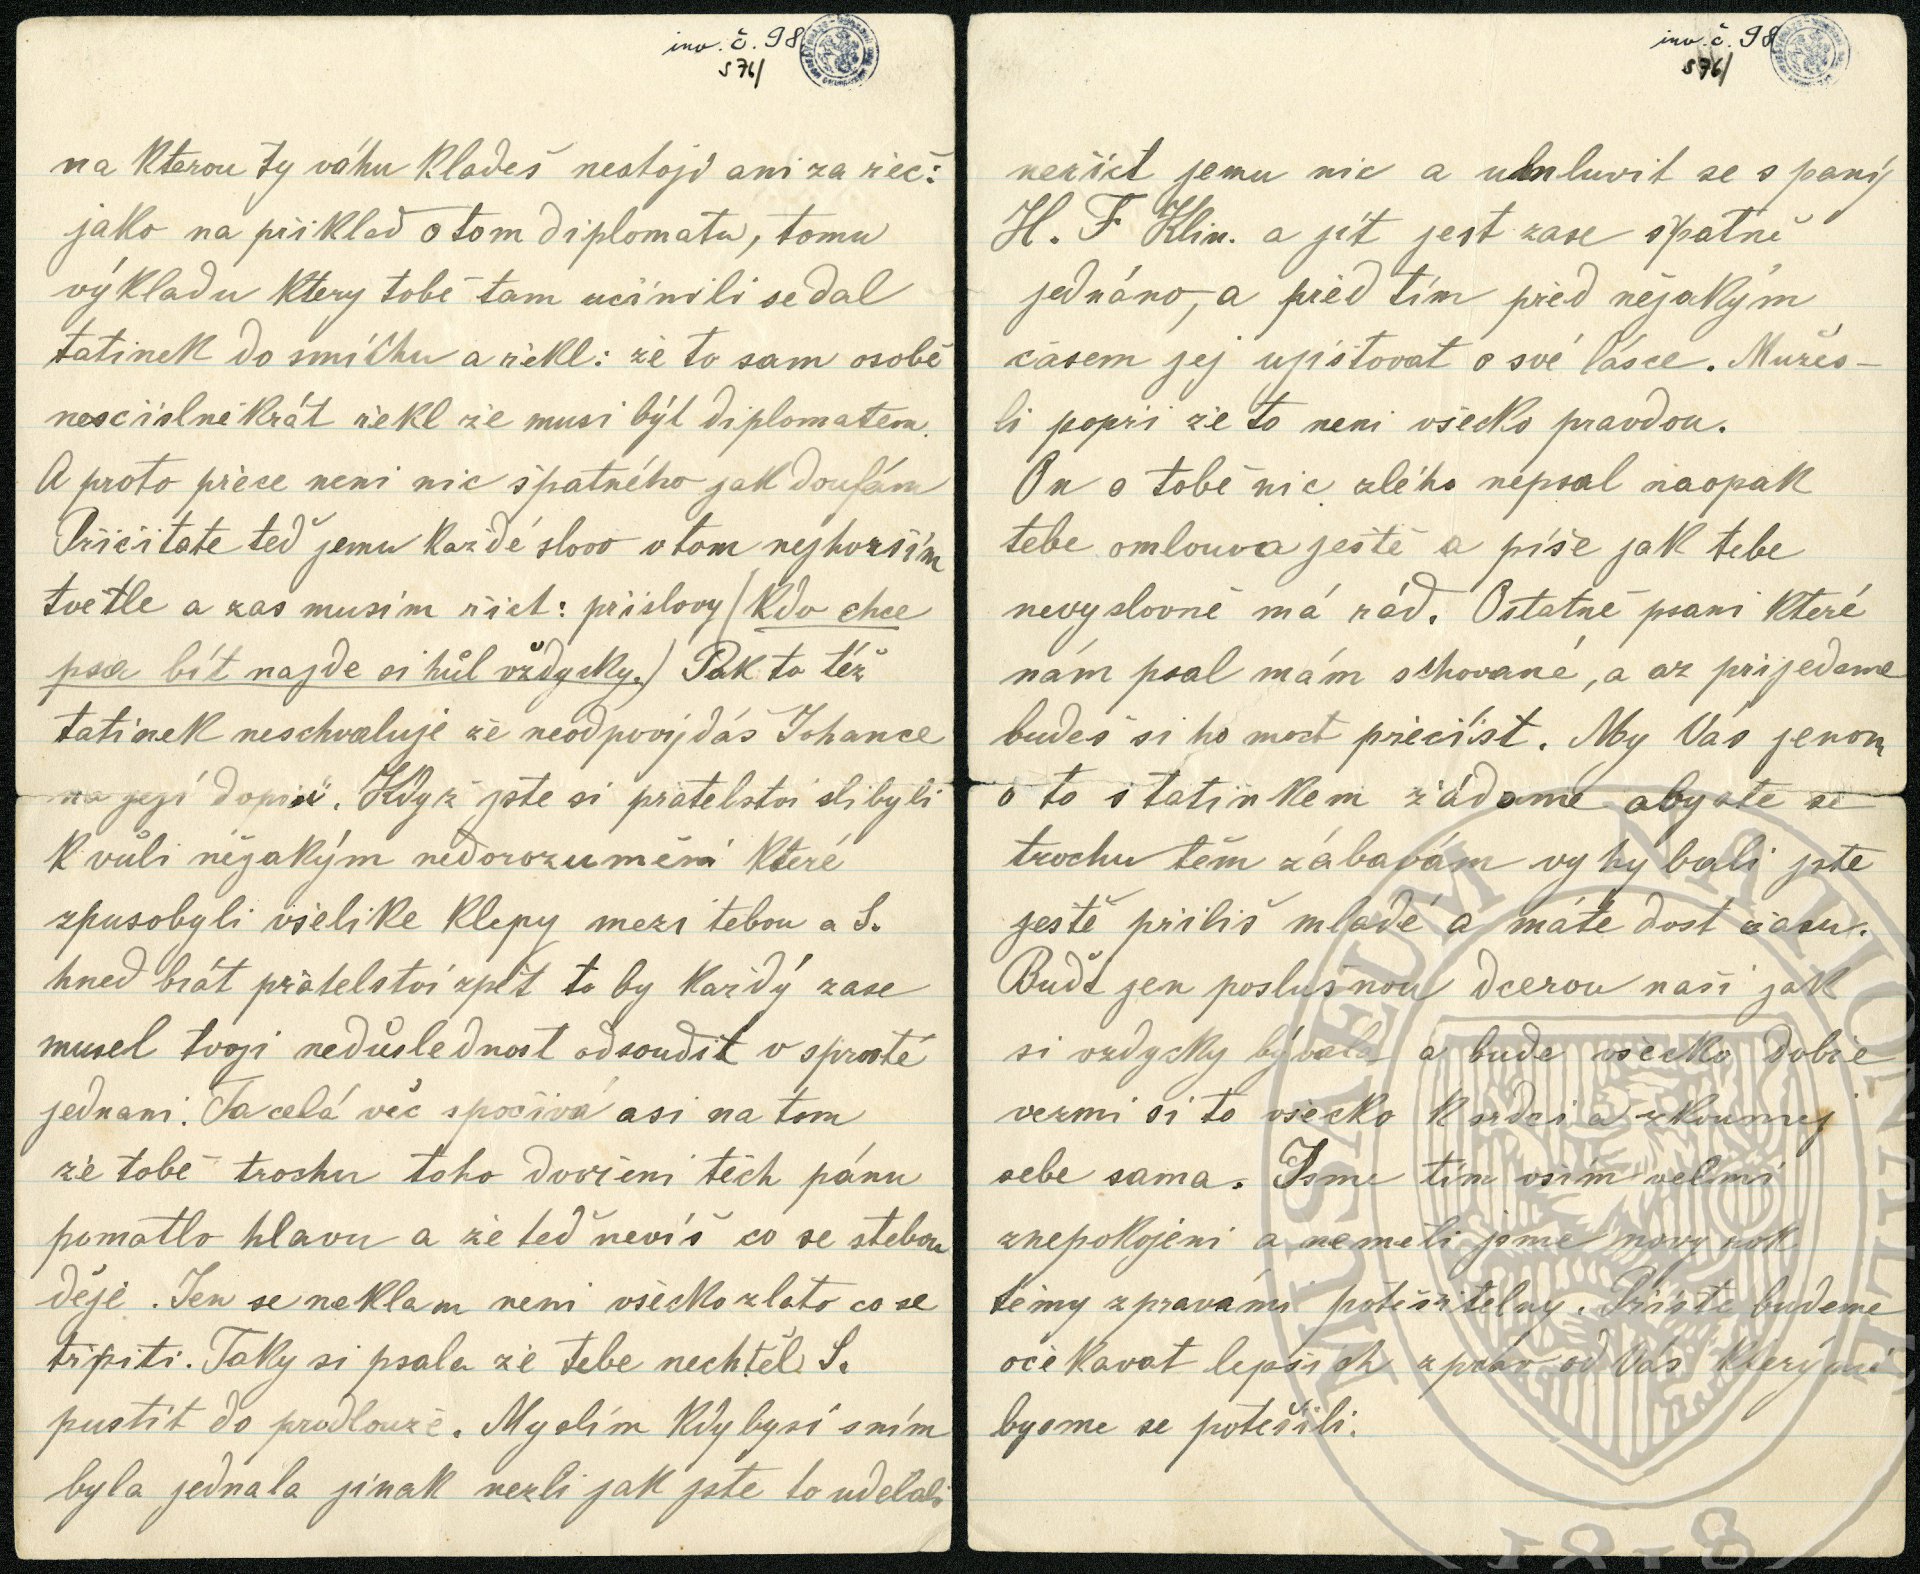 inv. č. 98
s 76/
na kterou ty váhu kladeš nestojí ani za řeč:
jako na přiklad o tom diplomatu, tomu
výkladu ktery tobě tam učinili se dal
tatinek do smíchu a řekl: že to sam osobě
nesčíslněkrát řekl že musi být diplomatem.
A proto přece neni nic špatného jak doufám
Přičitate teď jemu každé slovo v tom nejhoršim
světle a zas musim řict: přislovy (Kdo chce
psa bít najde si hůl vždycky.) Pak to též
tatinek neschvaluje že neodpovýdáš Johance
na její dopis. Když jste si přatelstvi slibyli
k vůli nějakým nedorozuměni které
zpusobyli všelike klepy mezi tebou a S.
hned brát přátelství zpět to by každý zase
musel tvoji nedůslednost odsoudit v sprosté
jednani. Ta celá věc spočivá asi na tom
že tobě trochu toho dvořeni těch pánu
pomatlo hlavu a že teď nevíš co se stebou
děje. Jen se neklam neni všecko zlato co se
třpiti. Taky si psala že tebe nechtěl S.
pustit do prodlouže. Myslím kdybysi sním
byla jednala jinak nezli jak jste to udělali
inv. č. 98
s 76/
neřict jemu nic a umluvit se s paní
H. F Klin. a jít jest zase špatně
jednáno, a před tím před nějakým
časem jej ujistovat o své lásce. Mužeš-
li popři že to neni všecko pravdou.
On o tobě nic zlého nepsal naopak
tebe omlouva ještě a píše jak tebe
nevyslovně má rád. Ostatně psani které
nám psal mám schované, a až přijedeme
budeš si ho moct přečíst. My Vás jenom
o to s tatinkem žádame abyste se
trochu těm zábavám vyhybali jste
ještě přiliš mladé a máte dost času.
Buďt jen poslušnou dcerou naši jak
si vzdycky bývala a bude všecko dobře
vezmi si to všecko k srdci a zkoumej
sebe sama. Jsme tím vším velmi
znepokojeni a neměli jsme novy rok
těmy zpravámi potěšitelny. Přiště budeme
očekavat lepšich zpráv od Vás kterými
bysme se potěšili.
MUSAEUM NATIONALE
1818